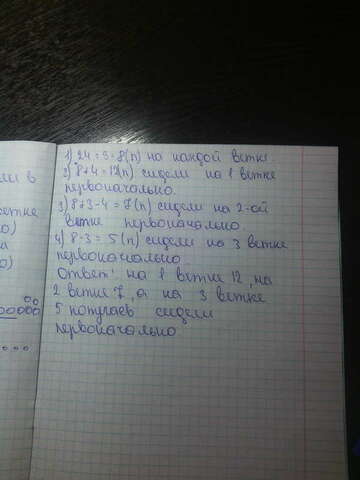 ли в
ветке
о)
а
о)
1) 24 : 3 = 8(п) на каждой ветке.
2) 8+4 = 12(п) сидели на 1 ветке
первоначально.
3) 8+3-4 = 7(п) сидели на 2-ой
ветке первоначально
4) 8-3 = 5(п) сидели на 3 ветке
первоначально
Ответ: на 1 ветке 12, на
2 ветке 7, а на 3 ветке
5 попугаев сидели
первоначально